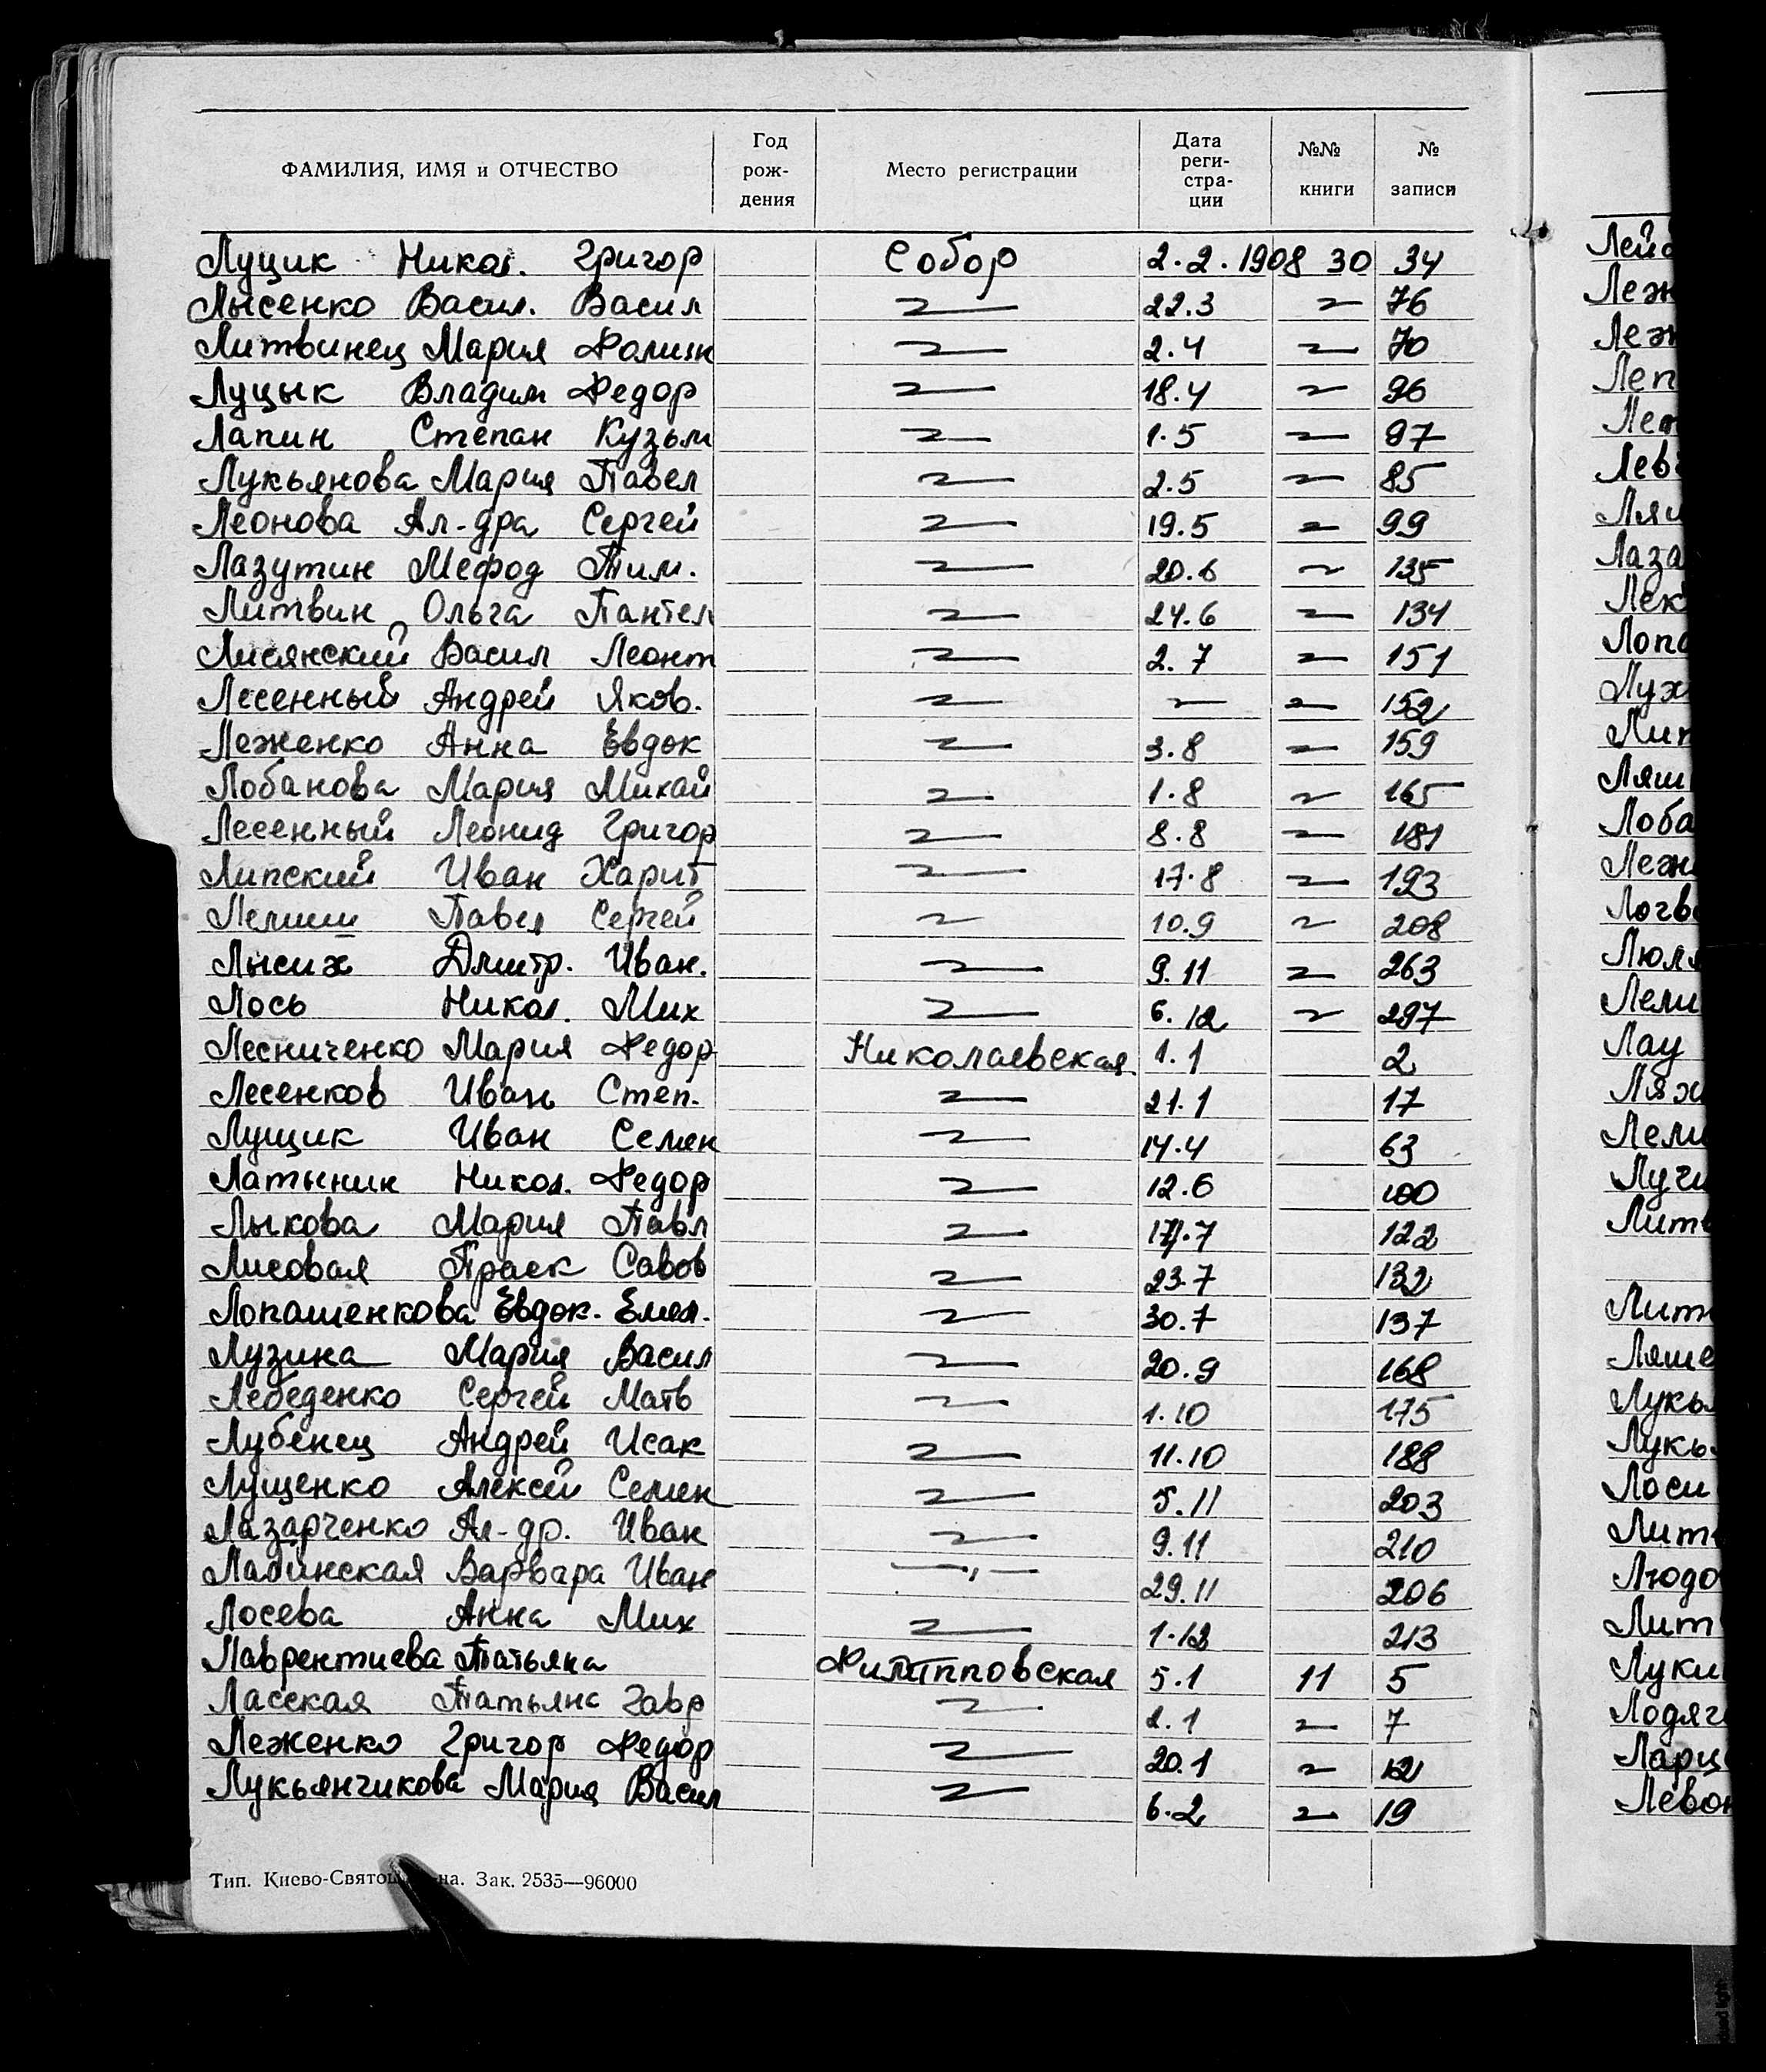 ФАМИЛИЯ, ИМЯ и ОТЧЕСТВО Год рождения Место регистрации Дата регистрации №№ книги № записи
Луцик Никол. Григор Собор 2.2.1908 30 34
Лысенко Васил. Васил 〃 22.3 〃 76
Литвинец Мария 〃 2.4 〃 70
Луцык Владим Федор 〃 18.4 〃 96
Лапин Степан Кузьм 〃 1.5 〃 97
Лукьянова Мария Павел 〃 2.5 〃 85
Леонова Ал-дра Сергей 〃 19.5 〃 99
Лазутин Мефод Тим. 〃 20.6 〃 135
Литвин Ольга Пантел 〃 24.6 〃 134
Лисянский Васил Леонт 〃 2.7 〃 151
Лесенный Андрей Яков. 〃 〃 〃 152
Леженко Анна Евдок 〃 3.8 〃 159
Лобанова Мария Михай 〃 1.8 〃 165
Лесенный Леонид Григор 〃 8.8 〃 181
Липский Иван Харит 〃 17.8 〃 193
Лемиш Павел Сергей 〃 10.9 〃 208
Лысих Дмитр. Иван. 〃 9.11 〃 263
Лось Никол. Мих 〃 6.12 〃 297
Лесниченко Мария Федор Николаевская 1.1 2
Лесенков Иван Степ. 〃 21.1 17
Лущик Иван Семен 〃 14.4 63
Латынин Никол. Федор 〃 12.6 100
Лыкова Мария Павл 〃 7 122
Лисовая Праск Савов 〃 23.7 132
Лопашенкова Евдок. Емел. 〃 30.7 137
Лузина Мария Васил 〃 20.9 168
Лебеденко Сергей Матв 〃 1.10 175
Лубенец Андрей Исак 〃 11.10 188
Лущенко Алексей Семен 〃 5.11 203
Лазарченко Ал-др. Иван 〃 9.11 210
Варвара Иван —〃— 29.11 206
Лосева Анна Мих 〃 1.12 213
Лаврентиева Татьяна Филипповская 5.1 11 5
Ласская Татьяна Гавр 〃 2.1 〃 7
Леженко Григор Федор 〃 20.1 〃 12
Лукьянчикова Мария Васил 〃 6.2 〃 19
Тип. Киево-Свято на. Зак. 2535—96000